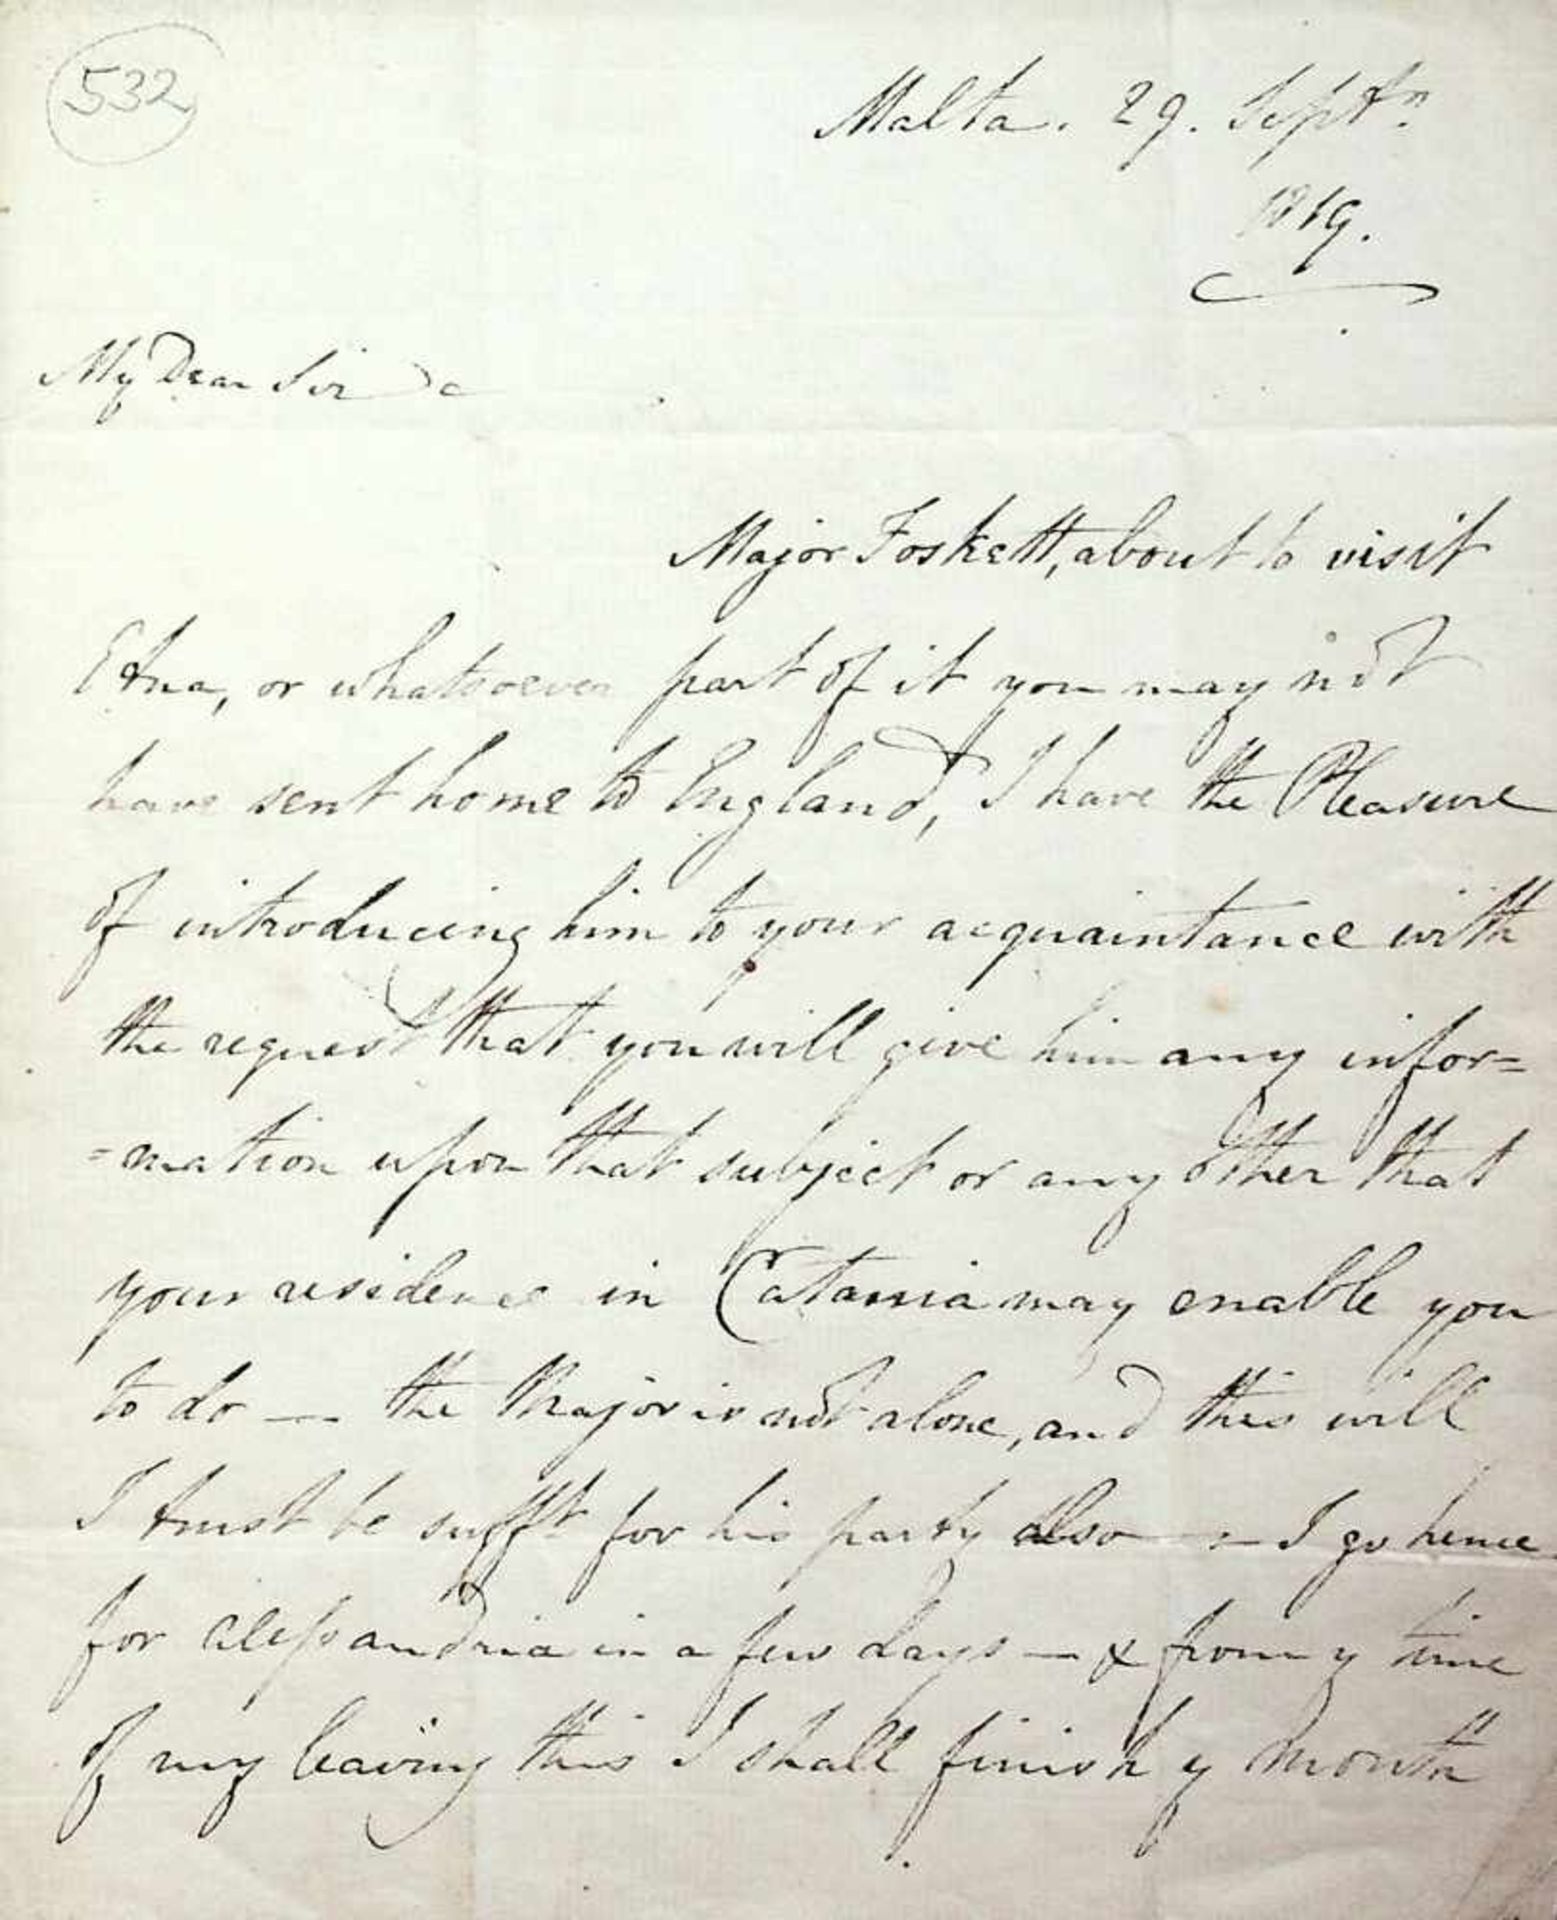 532
Malta. 29. Septr.
1819.
My Dear Sir
Major Foskett, about to visit
Etna, or whatsoever part of it you may not
have sent home to England, I have the Pleasure
of introducing him to your acquaintance with
the request that you will give him any infor=
=mation upon that subject or any other that
your residence in Catania may enable you
to do — the Major is not alone, and this will
I trust be sufft for his party also — I go hence
for Alessandria in a few days — & from y time
of my leaving this I shall finish y month